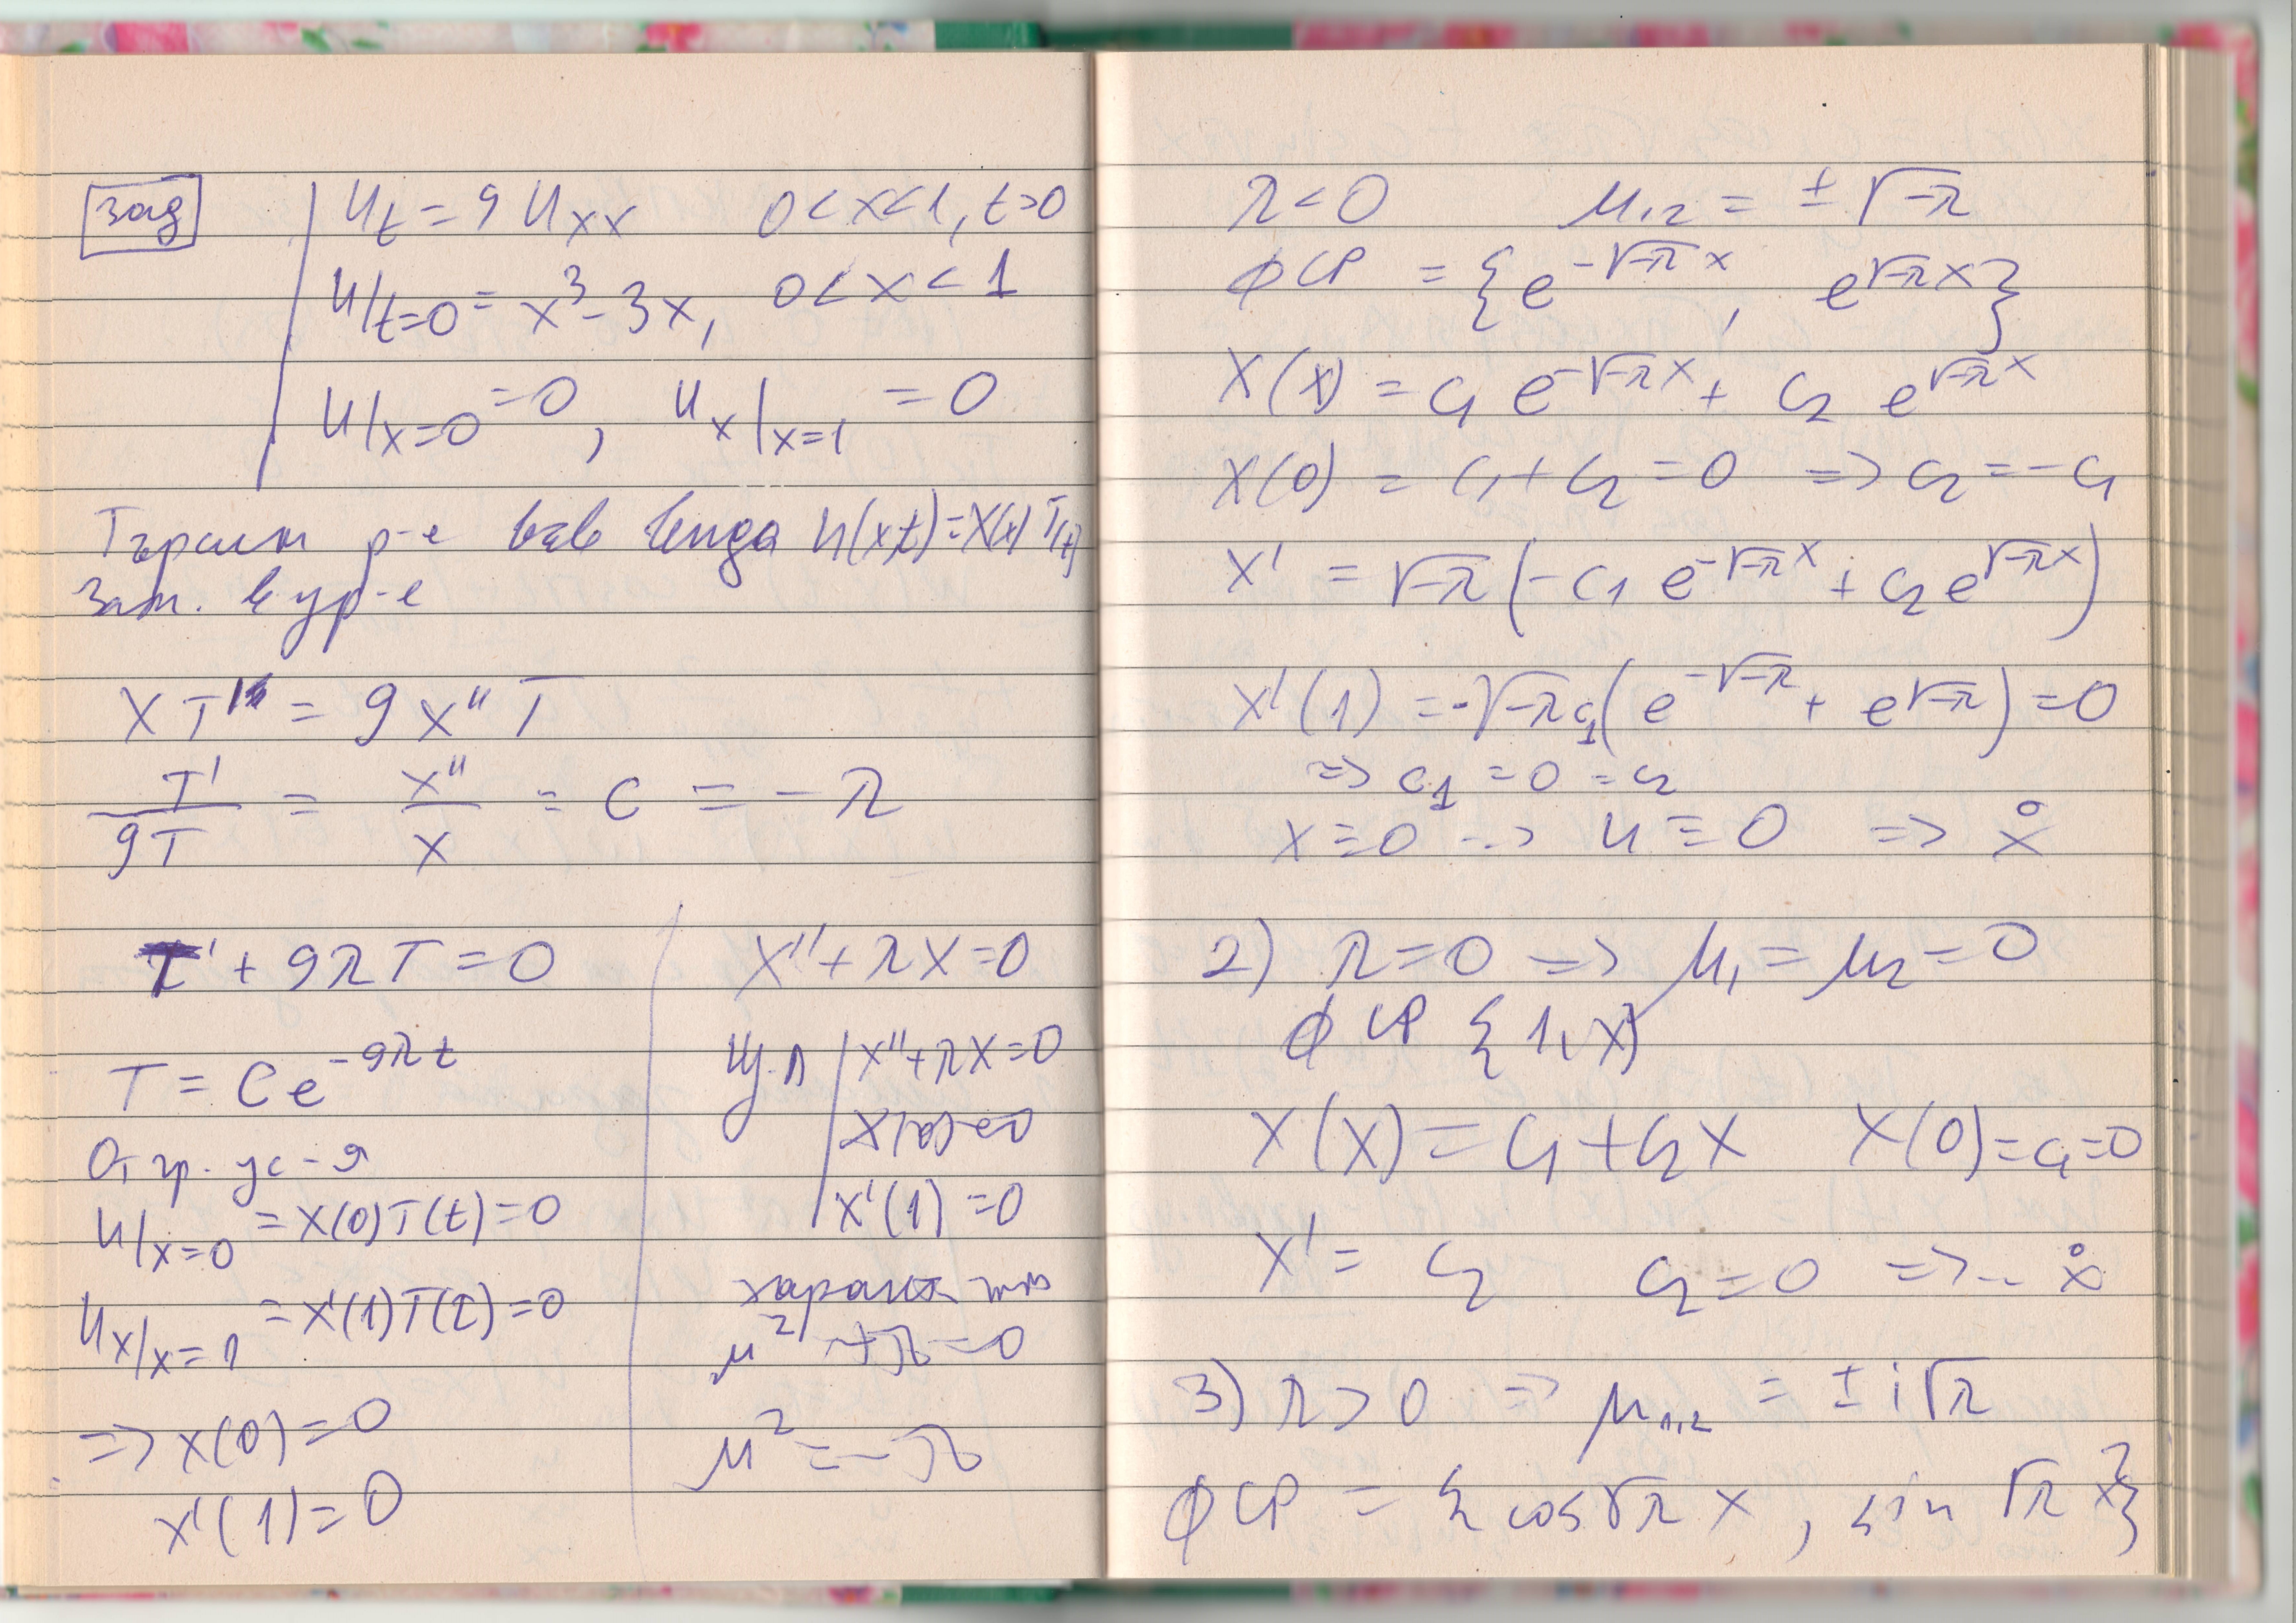 зад
u_t = 9 u_xx 0 < x < 1, t > 0
u/t=0 = x³ - 3x, 0 < x < 1
u/x=0 = 0, u_x/x=1 = 0
Търсим р-е във вида u(x,t) = X(x) T(t)
Зам. в ур-е
X T' = 9 X'' T
T'/9T = X''/X = c = -λ
T' + 9λT = 0
T = C e^{-9λt}
От гр. ус-я
u/x=0 = X(0)T(t) = 0
u_x/x=1 = X'(1)T(t) = 0
=> X(0) = 0
X'(1) = 0
X'' + λX = 0
Щ.Л X'' + λX = 0
X(0) = 0
X'(1) = 0
μ² + λ = 0
μ² = -λ
λ < 0 μ₁,₂ = ± √-λ
ФСР = {e^{-√-λ x}, e^{√-λ x}}
X(x) = c₁ e^{-√-λ x} + c₂ e^{√-λ x}
X(0) = c₁ + c₂ = 0 => c₂ = -c₁
X' = √-λ (-c₁ e^{-√-λ x} + c₂ e^{√-λ x})
X'(1) = -√-λ c₁ (e^{-√-λ} + e^{√-λ}) = 0
=> c₁ = 0 = c₂
X ≡ 0 => u ≡ 0 => x̊
2) λ = 0 => μ₁ = μ₂ = 0
ФСР {1, x}
X(x) = c₁ + c₂x X(0) = c₁ = 0
X' = c₂ c₂ = 0 => .. x̊
3) λ > 0 => μ₁,₂ = ± i√λ
ФСР = {cos√λ x, sin √λ x}